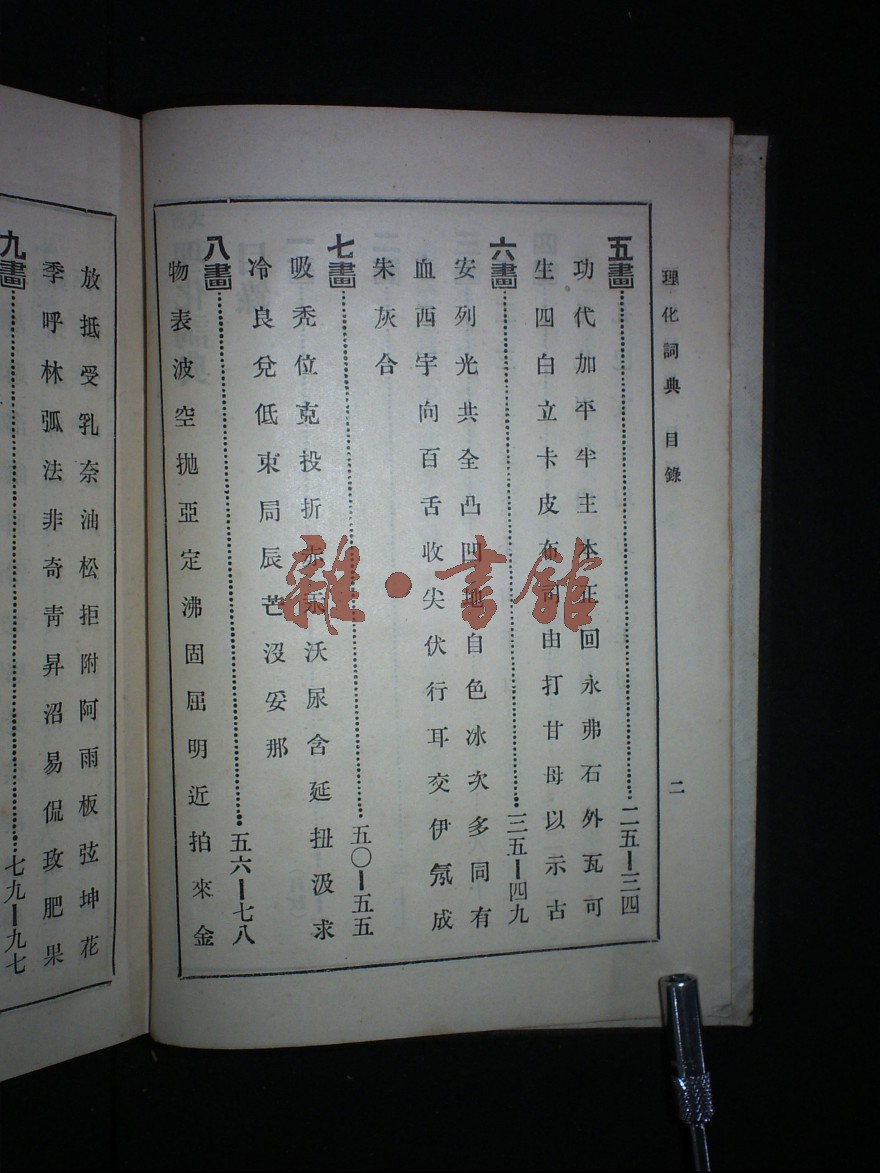 理化詞典 目錄 二
五畫 二五—三四
功代加平半主本正回永弗石外瓦可
生四白立卡皮布可由打甘母以示古
六畫 三五—四九
安列光共全凸凹地自色冰次多同有
血西宇向百舌收尖伏行耳交伊氖成
朱灰合
七畫 五〇—五五
吸禿位克投折赤汞沃尿含延扭汲求
冷良兌低束局辰芒沒妥那
八畫 五六—七八
物表波空抛亞定沸固屈明近拍來金
放抵受乳奈油松拒附阿雨板弦坤花
季呼林弧法非奇靑昇沼易侃玫肥果
九畫 七九—九七
雜·書館